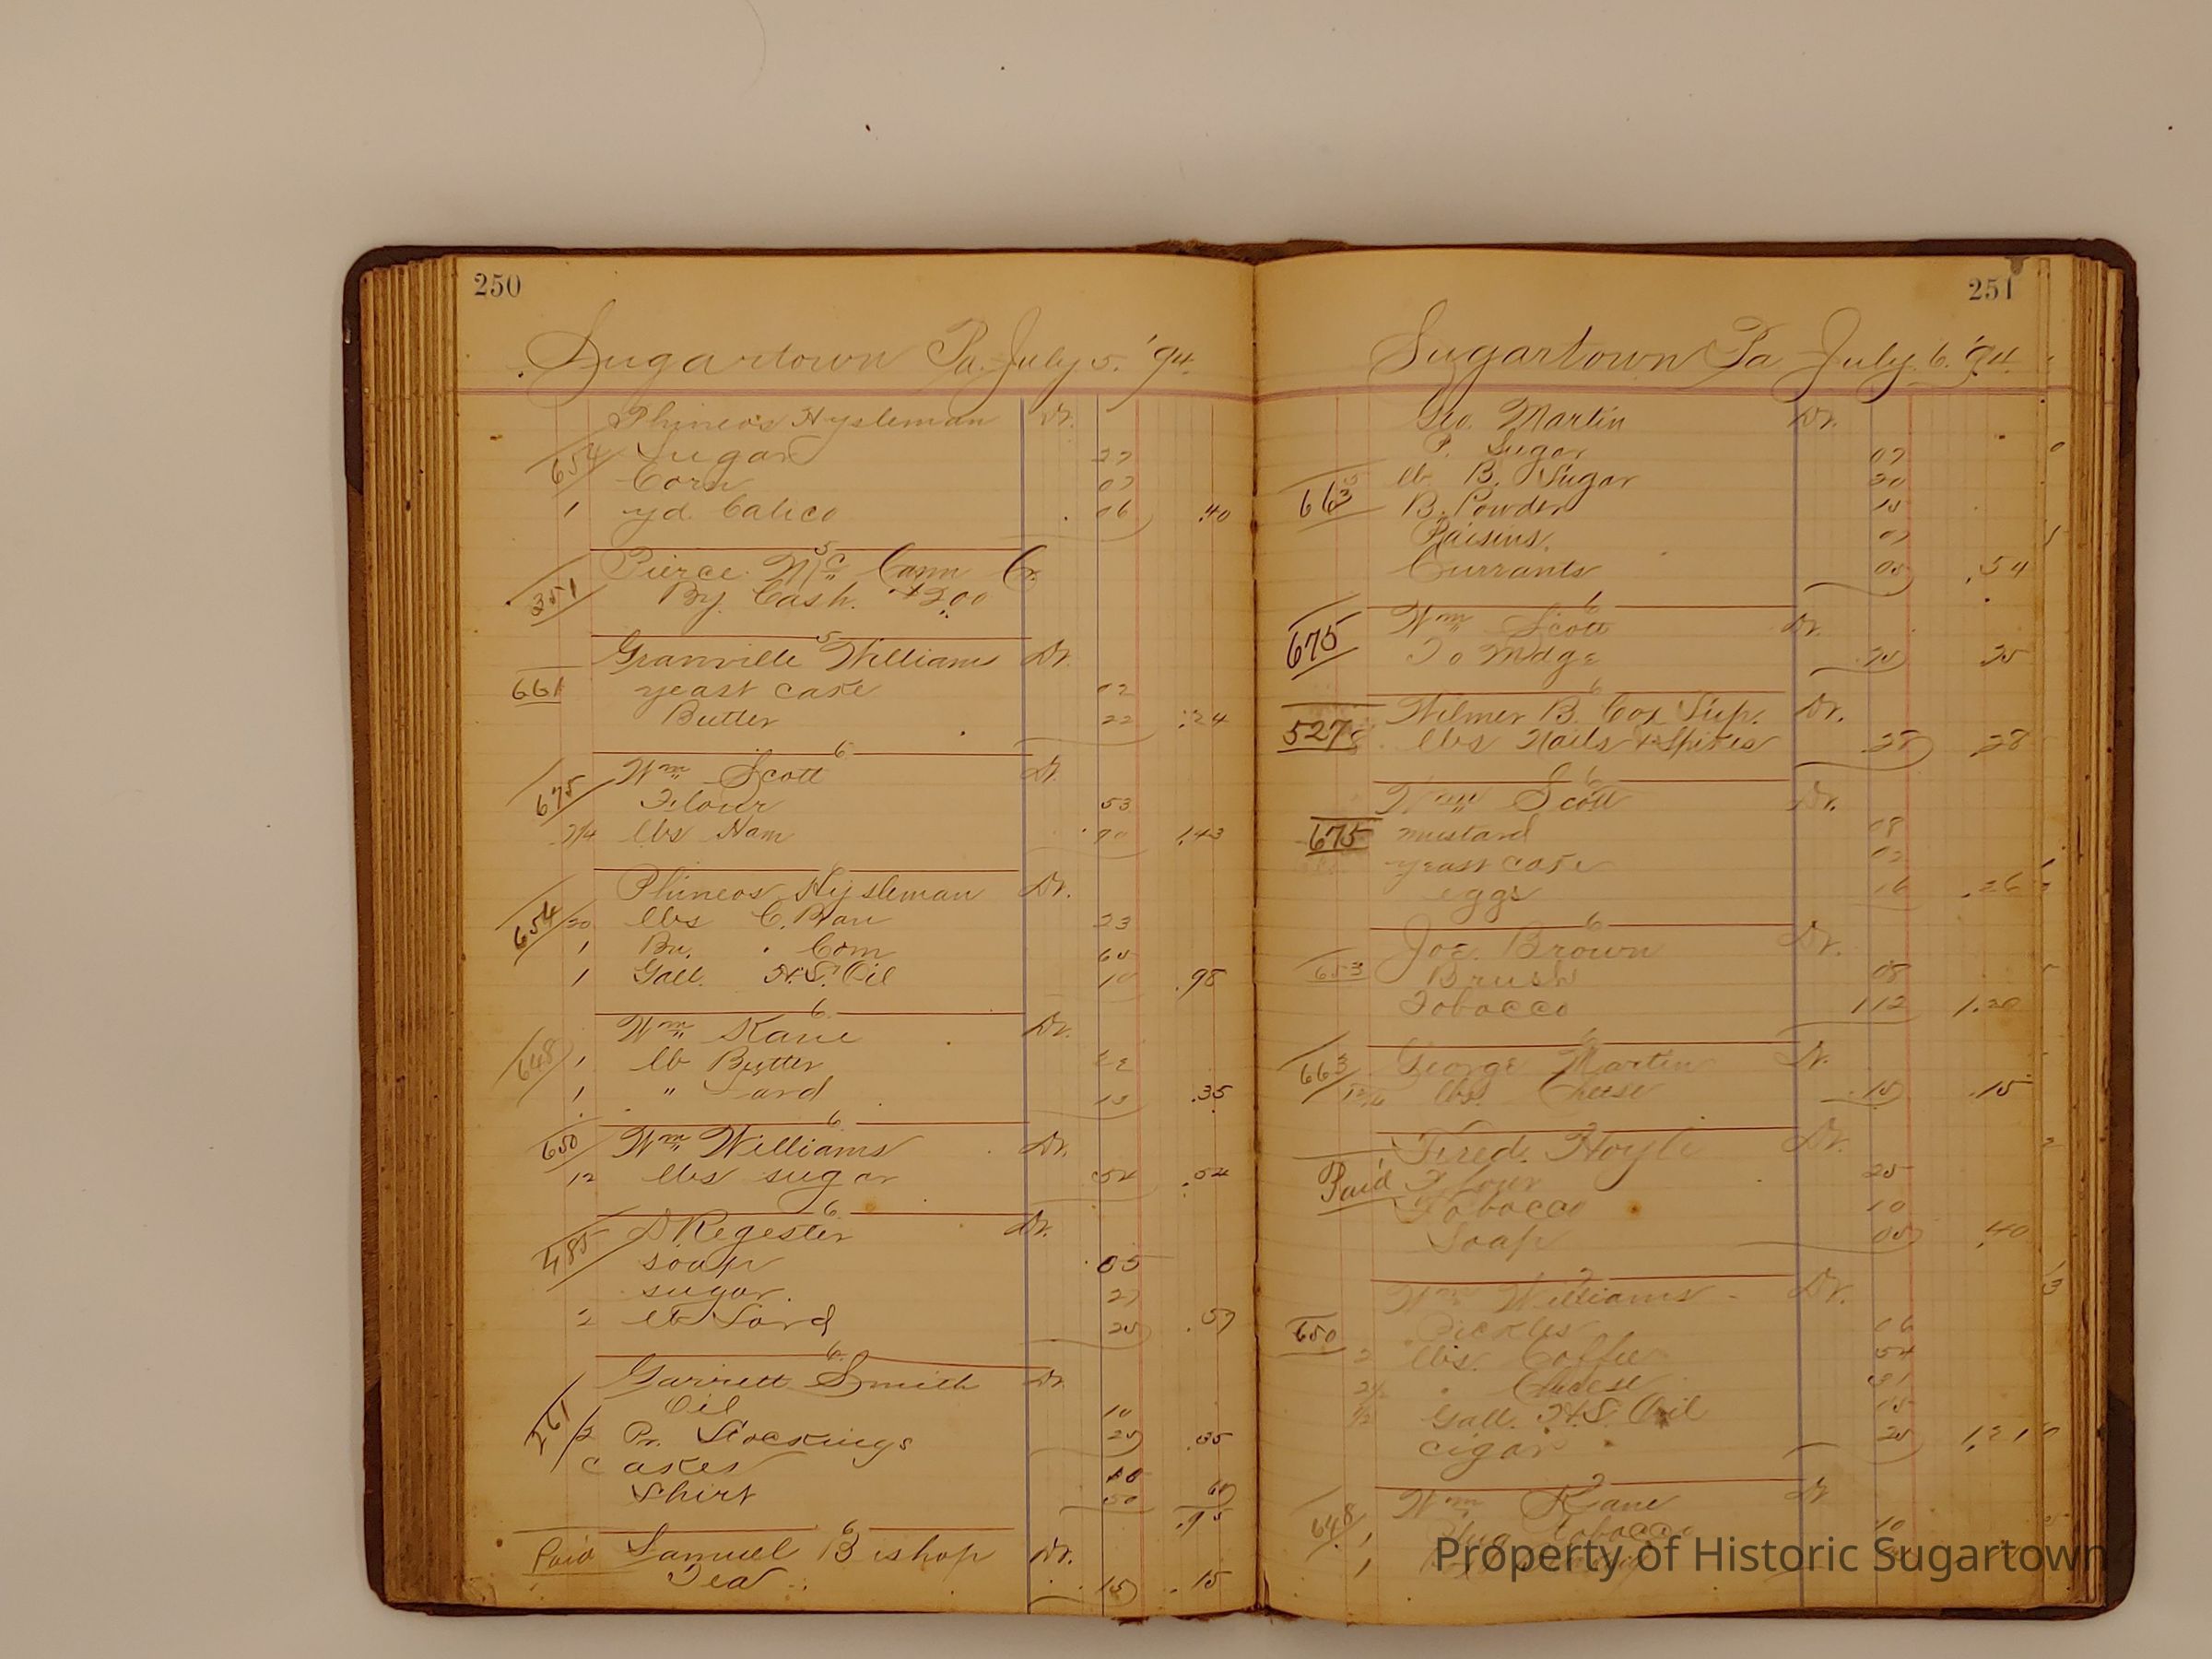 250
Sugartown Pa. July 5. '94.
Phineos Hysleman Dr.
654 Sugar 27
Corn 07
1 yd. Calico 06 .40
5
Pierce Mc Cann Cr.
351 By Cash. $2.00
5
Granville Williams Dr.
661 yeast cake 02
Butter 22 .24
6
Wm Scott Dr.
675 Flour 53
7/4 lbs Ham 90 1.43
Phineos Hysleman Dr.
654 20 lbs C. Bran 23
1 Bu. Corn 65
1 Gall. H.S. Oil 10 .98
6
Wm Kane Dr.
648 1 lb Butter 22
1 " Lard 13 .35
6
650 Wm Williams Dr.
12 lbs sugar 54 .54
6
485 D Regester Dr.
soap 05
sugar. 27
2 lb Lard 25 .57
6
Garrett Smith Dr.
261 Oil 10
2 Pr. Stockings 25 .35
Cakes 10
Shirt 50 60
.95
6
Paid Samuel Bishop Dr.
Tea 15 .15
251
Sugartown Pa July. 6. '94.
Geo. Martin Dr.
P. Sugar 07
663 5 lb B. Sugar 20
B. Powder 15
Raisins. 07
Currants 05 .54
6
675 Wm Scott Dr.
To Mdge 25 25
6
Wilmer B. Cox Sup. Dr.
527 8 lbs Nails & Spikes 28 28
6
Wm Scott Dr.
675 mustard 08
yeast cake 02
eggs 16 .26
6
Joe. Brown Dr.
653 Brush 08
Tobacco 112 1.20
6
663 George Martin Dr.
lbs. Cheese .15 .15
Fred. Hoyle Dr.
Paid Flour 25
Tobacco 10
Soap 05 .40
7
Wm Williams Dr.
650 Pickles 06
2 lbs. Coffee 54
Cheese 31
1/2 Gall. H.S. Oil 15
cigar 25 1.31
7
Wm Kane Dr
648 1 Plug Tobacco 10
1
Property of Historic Sugartown